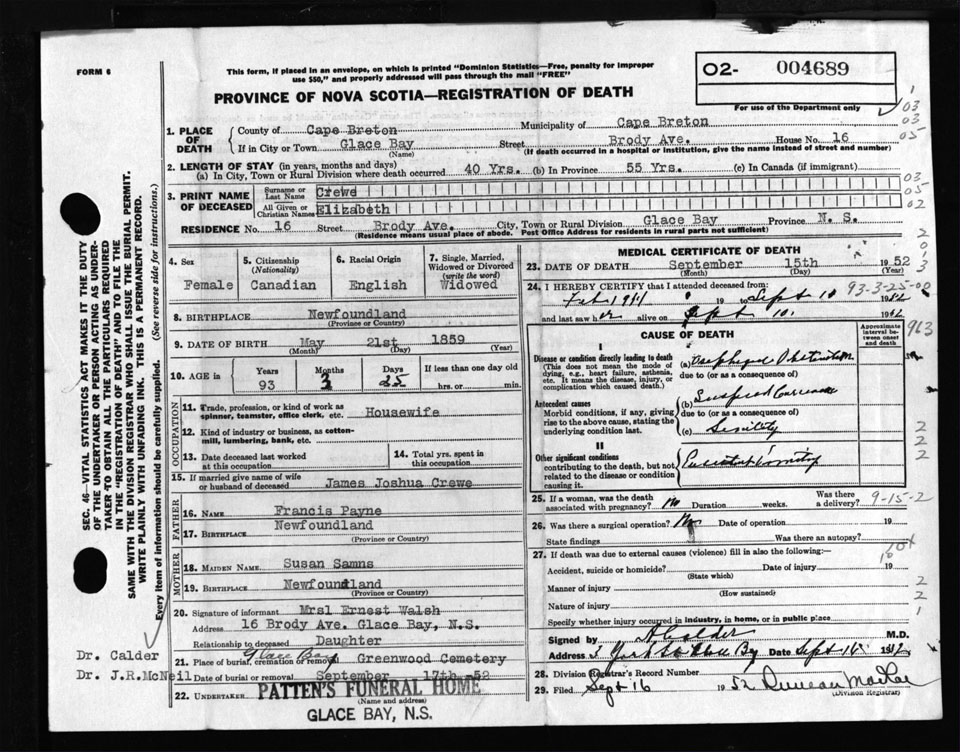 FORM 6
This form, if placed in an envelope, on which is printed "Dominion Statistics—Free, penalty for improper
use $50," and properly addressed will pass through the mail "FREE"
O2- 004689
For use of the Department only
PROVINCE OF NOVA SCOTIA—REGISTRATION OF DEATH
1. PLACE OF DEATH
County of Cape Breton Municipality of Cape Breton
If in City or Town Glace Bay Street Brody Ave. House No. 16
(Name) (If death occurred in a hospital or institution, give the name instead of street and number)
2. LENGTH OF STAY (in years, months and days)
(a) In City, Town or Rural Division where death occurred 40 Yrs. (b) In Province 55 Yrs. (c) In Canada (if immigrant)
3. PRINT NAME OF DECEASED
Surname or Last Name Crewe
All Given or Christian Names Elizabeth
RESIDENCE No. 16 Street Brody Ave. City, Town or Rural Division Glace Bay Province N. S.
(Residence means usual place of abode. Post Office Address for residents in rural parts not sufficient)
03
03
05
03
05
02
4. Sex
Female
5. Citizenship
(Nationality)
Canadian
6. Racial Origin
English
7. Single, Married,
Widowed or Divorced
(write the word)
Widowed
8. BIRTHPLACE Newfoundland
(Province or Country)
9. DATE OF BIRTH May 21st 1859
(Month) (Day) (Year)
10. AGE in
Years Months Days If less than one day old
93 3 25 hrs. or min.
OCCUPATION
11. Trade, profession, or kind of work as
spinner, teamster, office clerk, etc. Housewife
12. Kind of industry or business, as cotton-
mill, lumbering, bank, etc.
13. Date deceased last worked
at this occupation
14. Total yrs. spent in
this occupation
15. If married give name of wife
or husband of deceased James Joshua Crewe
FATHER
16. NAME Francis Payne
17. BIRTHPLACE Newfoundland
(Province or Country)
MOTHER
18. MAIDEN NAME Susan Samns
19. BIRTHPLACE Newfoundland
(Province or Country)
20. Signature of informant Mrsl Ernest Walsh
Address 16 Brody Ave. Glace Bay, N.S.
Relationship to deceased Daughter
21. Place of burial, cremation or removal Glace Bay Greenwood Cemetery
Date of burial or removal September 17th 52
22. UNDERTAKER PATTEN'S FUNERAL HOME
(Name and address)
GLACE BAY, N.S.
MEDICAL CERTIFICATE OF DEATH
23. DATE OF DEATH September 15th 1952
(Month) (Day) (Year)
24. I HEREBY CERTIFY that I attended deceased from: 93-3-25-00
19 to Sept 10
and last saw her alive on Sept 10.
CAUSE OF DEATH
Approximate
interval be-
tween onset
and death
963
I
Disease or condition directly leading to death
(This does not mean the mode of
dying, e.g., heart failure, asthenia,
etc. It means the disease, injury, or
complication which caused death.)
(a) Obstruction
due to (or as a consequence of)
Antecedent causes
Morbid conditions, if any, giving
rise to the above cause, stating the
underlying condition last.
(b)
due to (or as a consequence of)
(c) Senility
II
Other significant conditions
contributing to the death, but not
related to the disease or condition
causing it.
25. If a woman, was the death
associated with pregnancy? No Duration weeks. Was there
a delivery? 9-15-2
26. Was there a surgical operation? No Date of operation 19
State findings Was there an autopsy?
27. If death was due to external causes (violence) fill in also the following:—
Accident, suicide or homicide? Date of injury 19
(State which)
Manner of injury
(How sustained)
Nature of injury
Specify whether injury occurred in industry, in home, or in public place
Signed by A Calder M.D.
Address 3 York St Glace Bay Date Sept 16
28. Division Registrar's Record Number
29. Filed Sept 16 1952 Duncan
(Division Registrar)
SEC. 46—VITAL STATISTICS ACT MAKES IT THE DUTY
OF THE UNDERTAKER OR PERSON ACTING AS UNDER-
TAKER TO OBTAIN ALL THE PARTICULARS REQUIRED
IN THE "REGISTRATION OF DEATH" AND TO FILE THE
SAME WITH THE DIVISION REGISTRAR WHO SHALL ISSUE THE BURIAL PERMIT.
WRITE PLAINLY WITH UNFADING INK. THIS IS A PERMANENT RECORD.
Every item of information should be carefully supplied. (See reverse side for instructions.)
Dr. Calder
Dr. J.R.McNeil